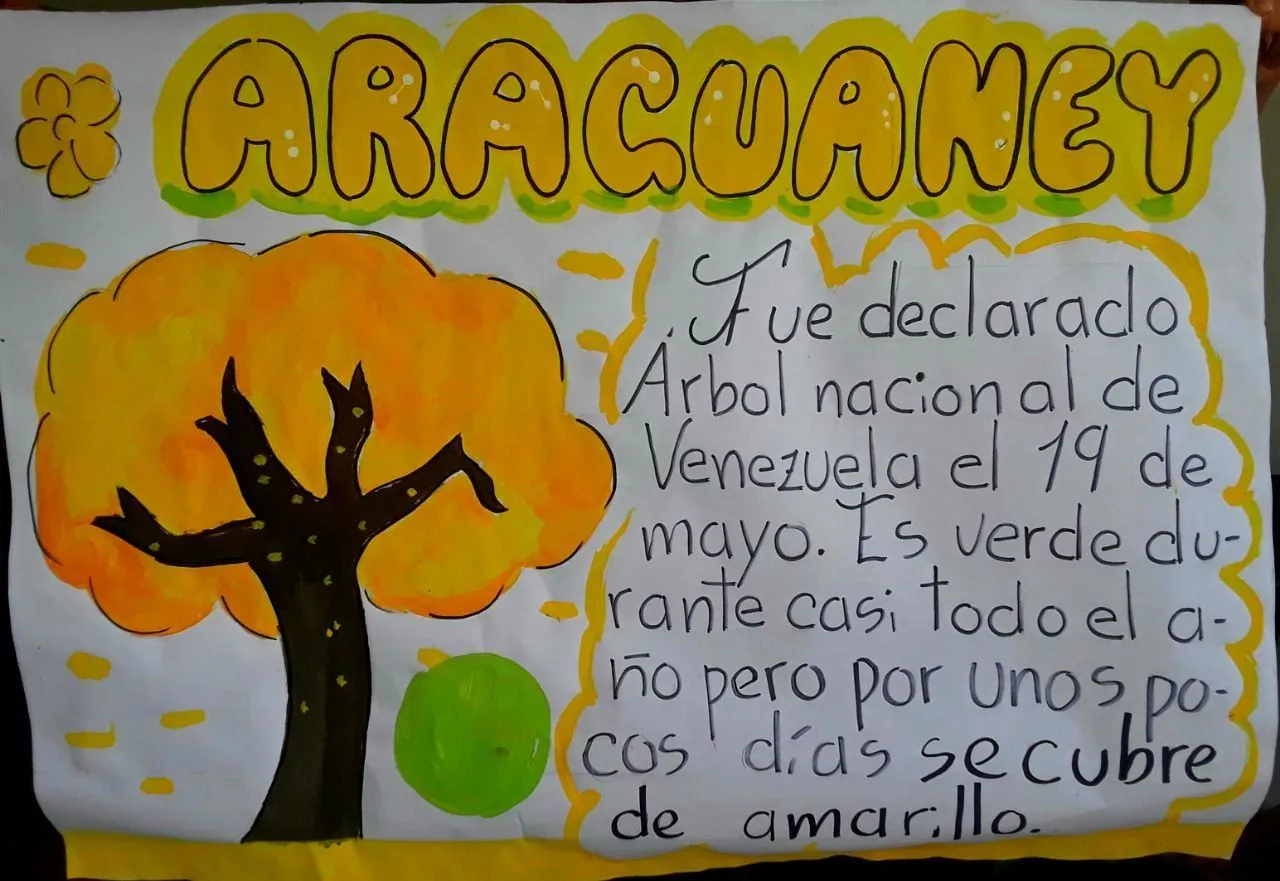 ARAGUANEY
.Fue declarado
Arbol nacional de
Venezuela el 19 de
mayo. Es verde du-
rante casi todo el a-
ño pero por unos po-
cos días se cubre
de amarillo.